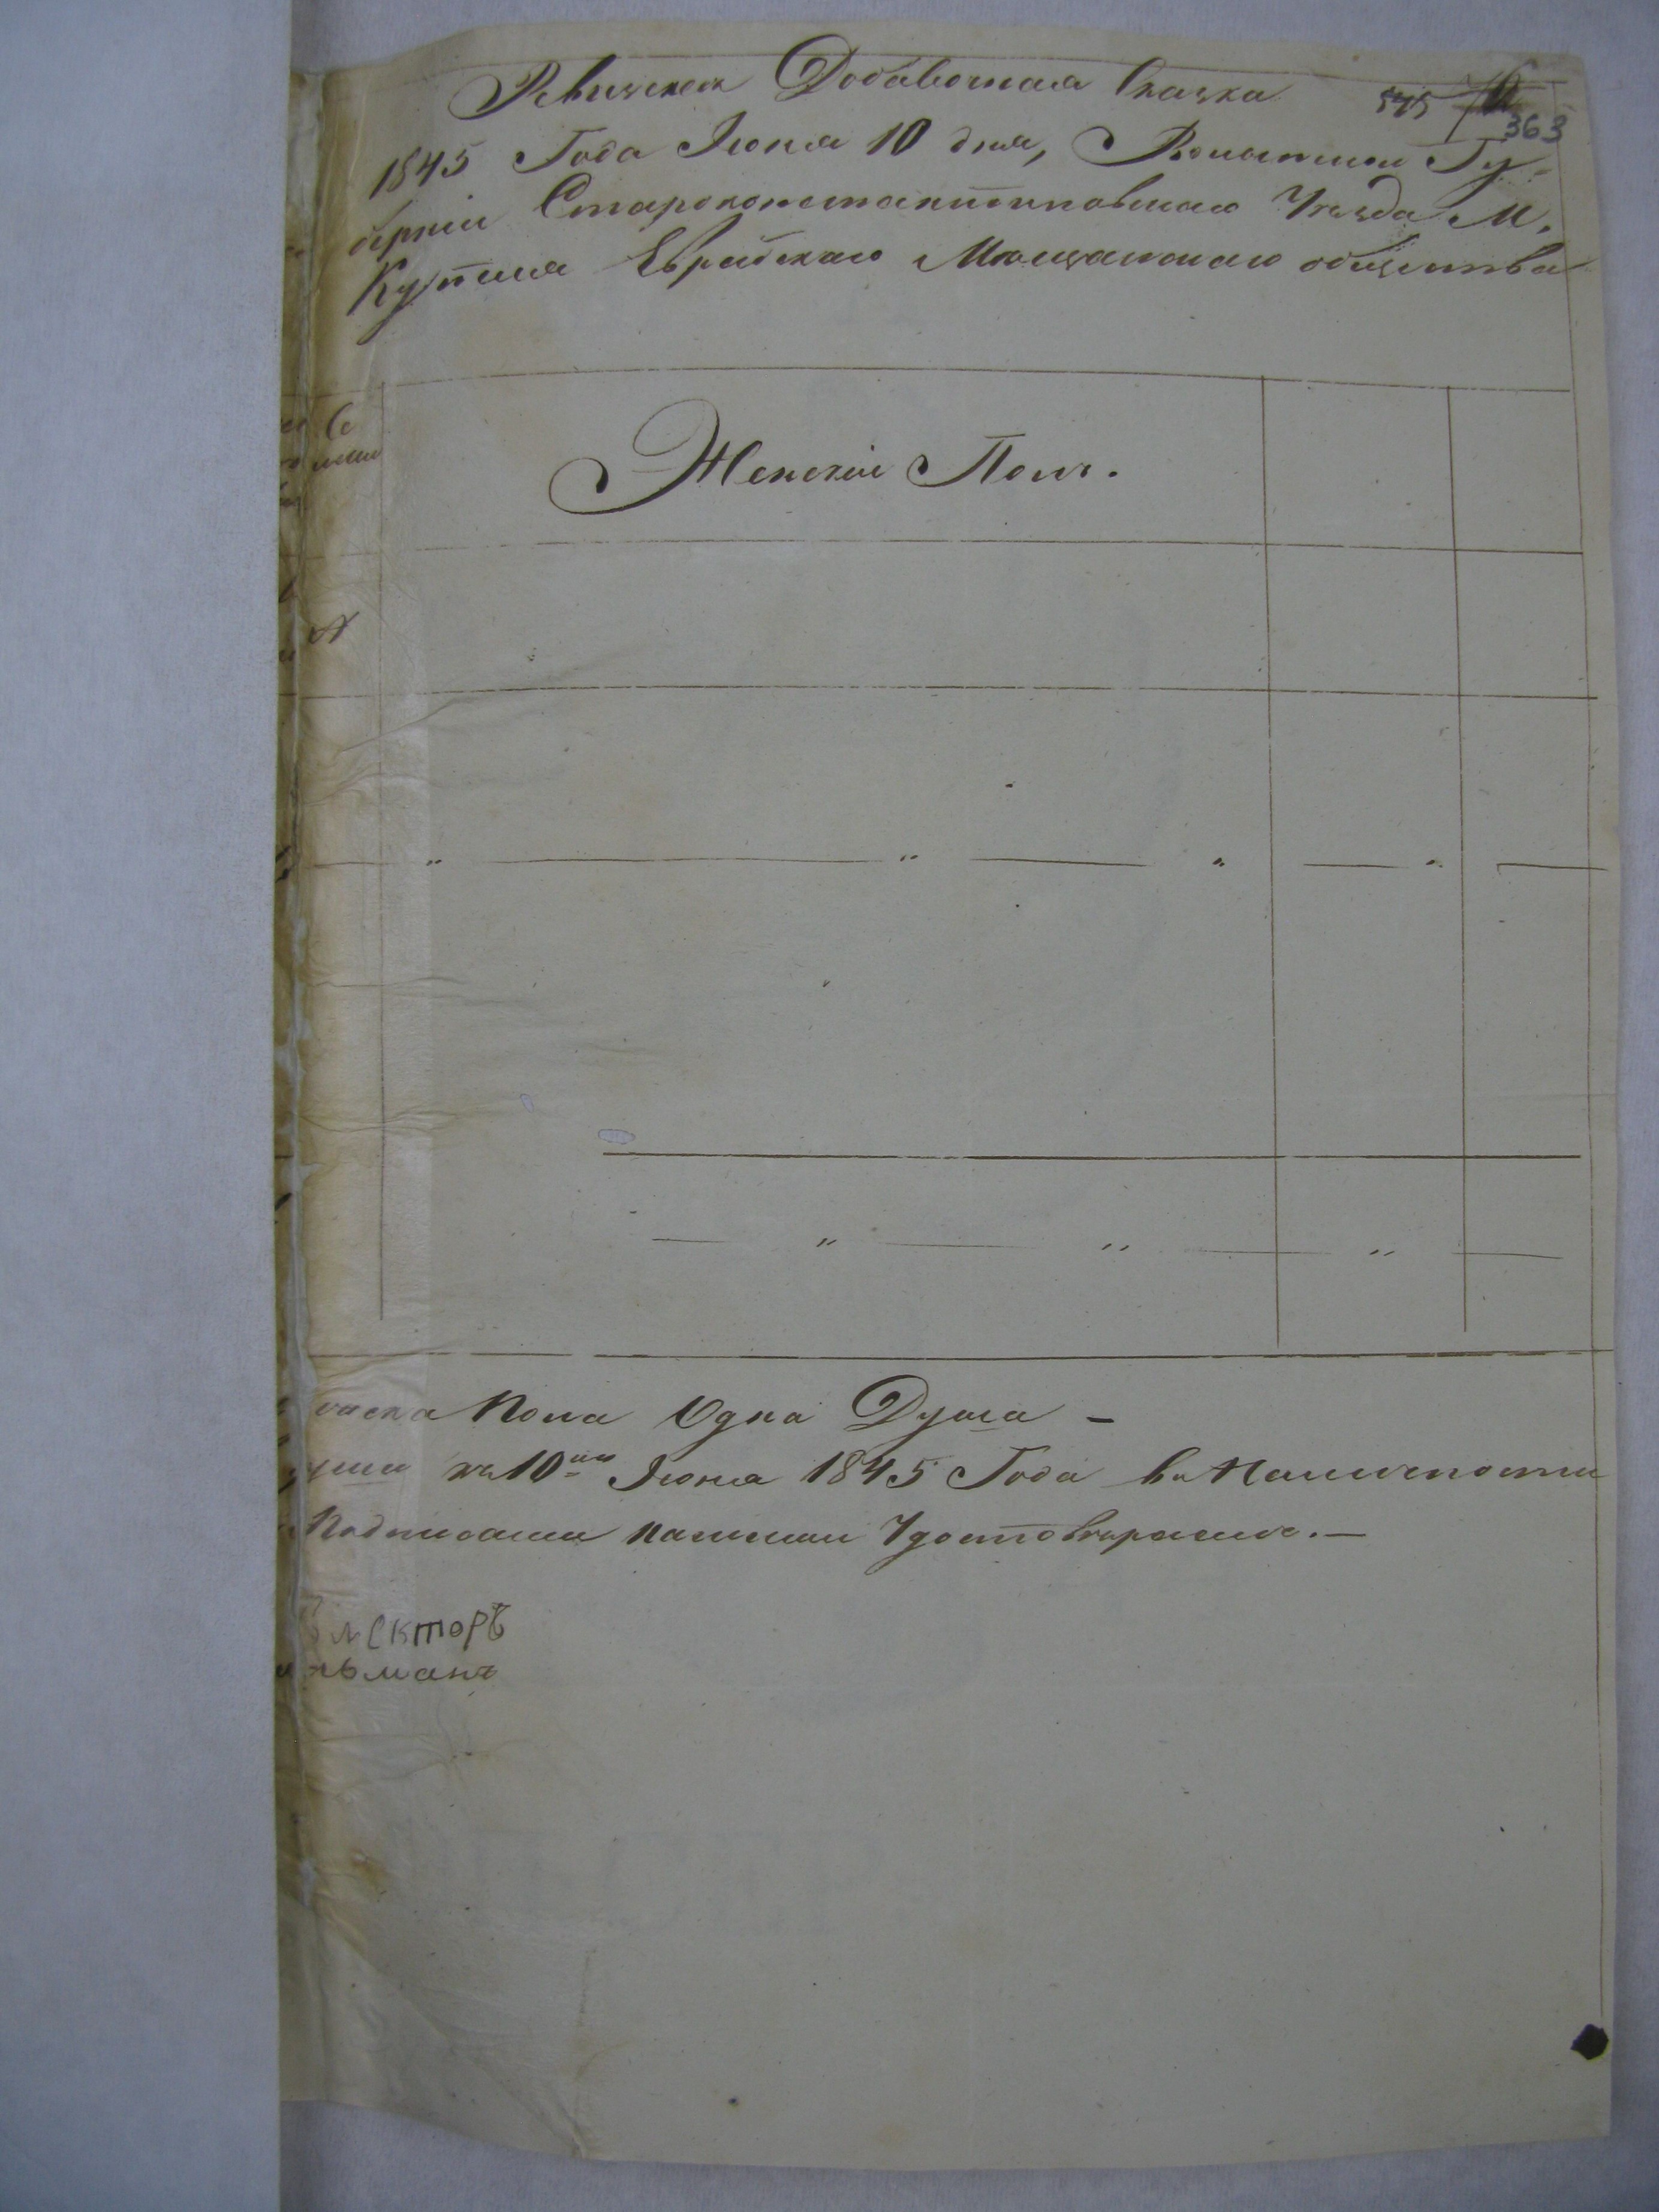 Ревизская Добавочная Сказка
545
363
1845 Года Июня 10 дня, Волынской Гу-
берніи Староконстантиновскаго Уезда М.
Купеля Еврейскаго Мещанскаго общества
Женскій Полъ.
пола Одна Душа —
къ 10му Июня 1845 Года въ Наличности
Подписями нашими Удостоверяемъ. —
екторъ
льманъ